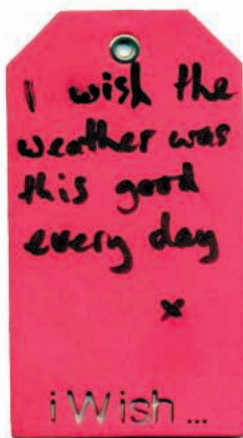 I wish the
weather was
this good
every day
x
iWish...